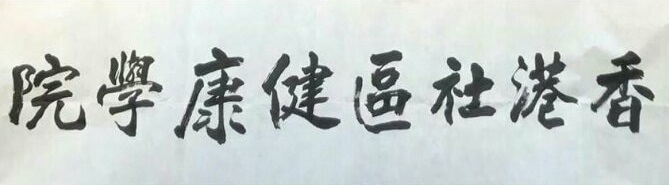 香港社區健康學院